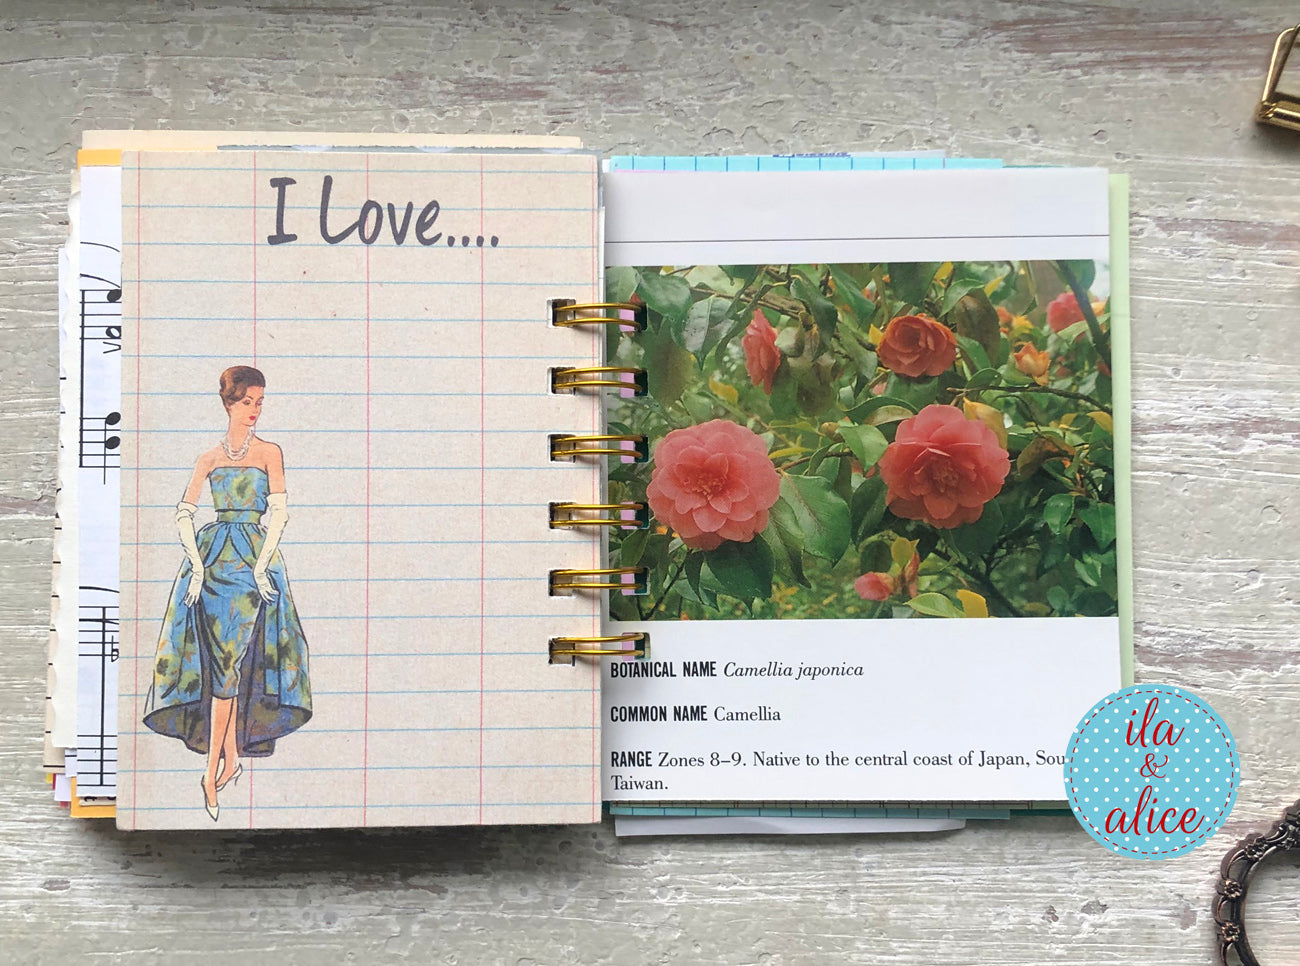 I Love....
BOTANICAL NAME Camellia japonica
COMMON NAME Camellia
RANGE Zones 8–9. Native to the central coast of Japan,
Taiwan.
ila
&
alice